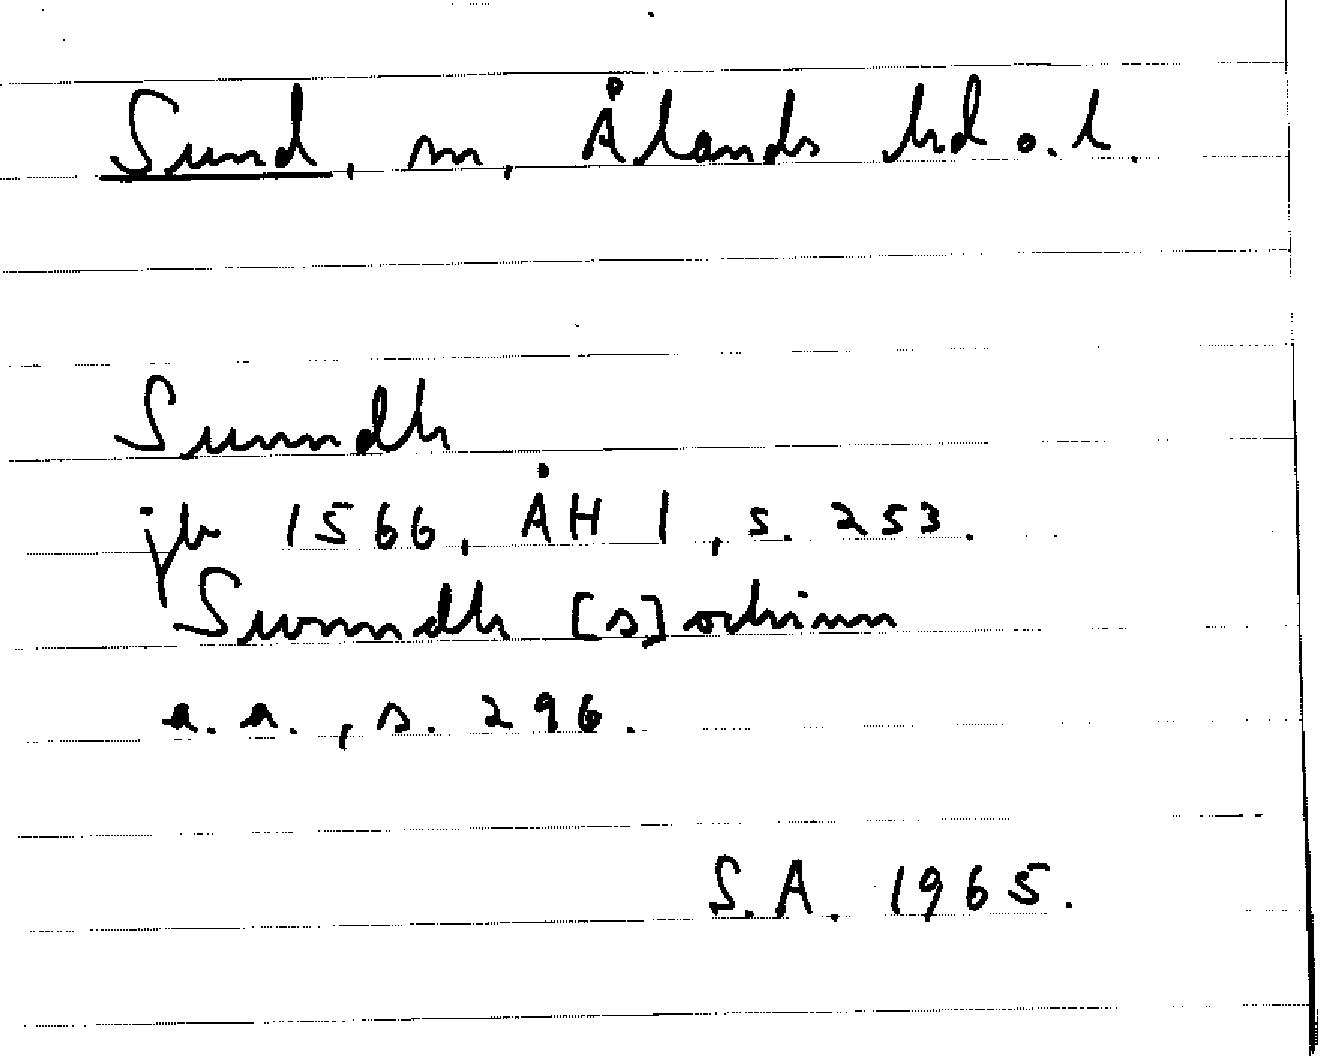 Sund, sn, Ålands hd o. l.
Sunndh
jb 1566, ÅH 1, s. 253.
Swnndh [s]ochinn
a. a., s. 296.
S.A. 1965.